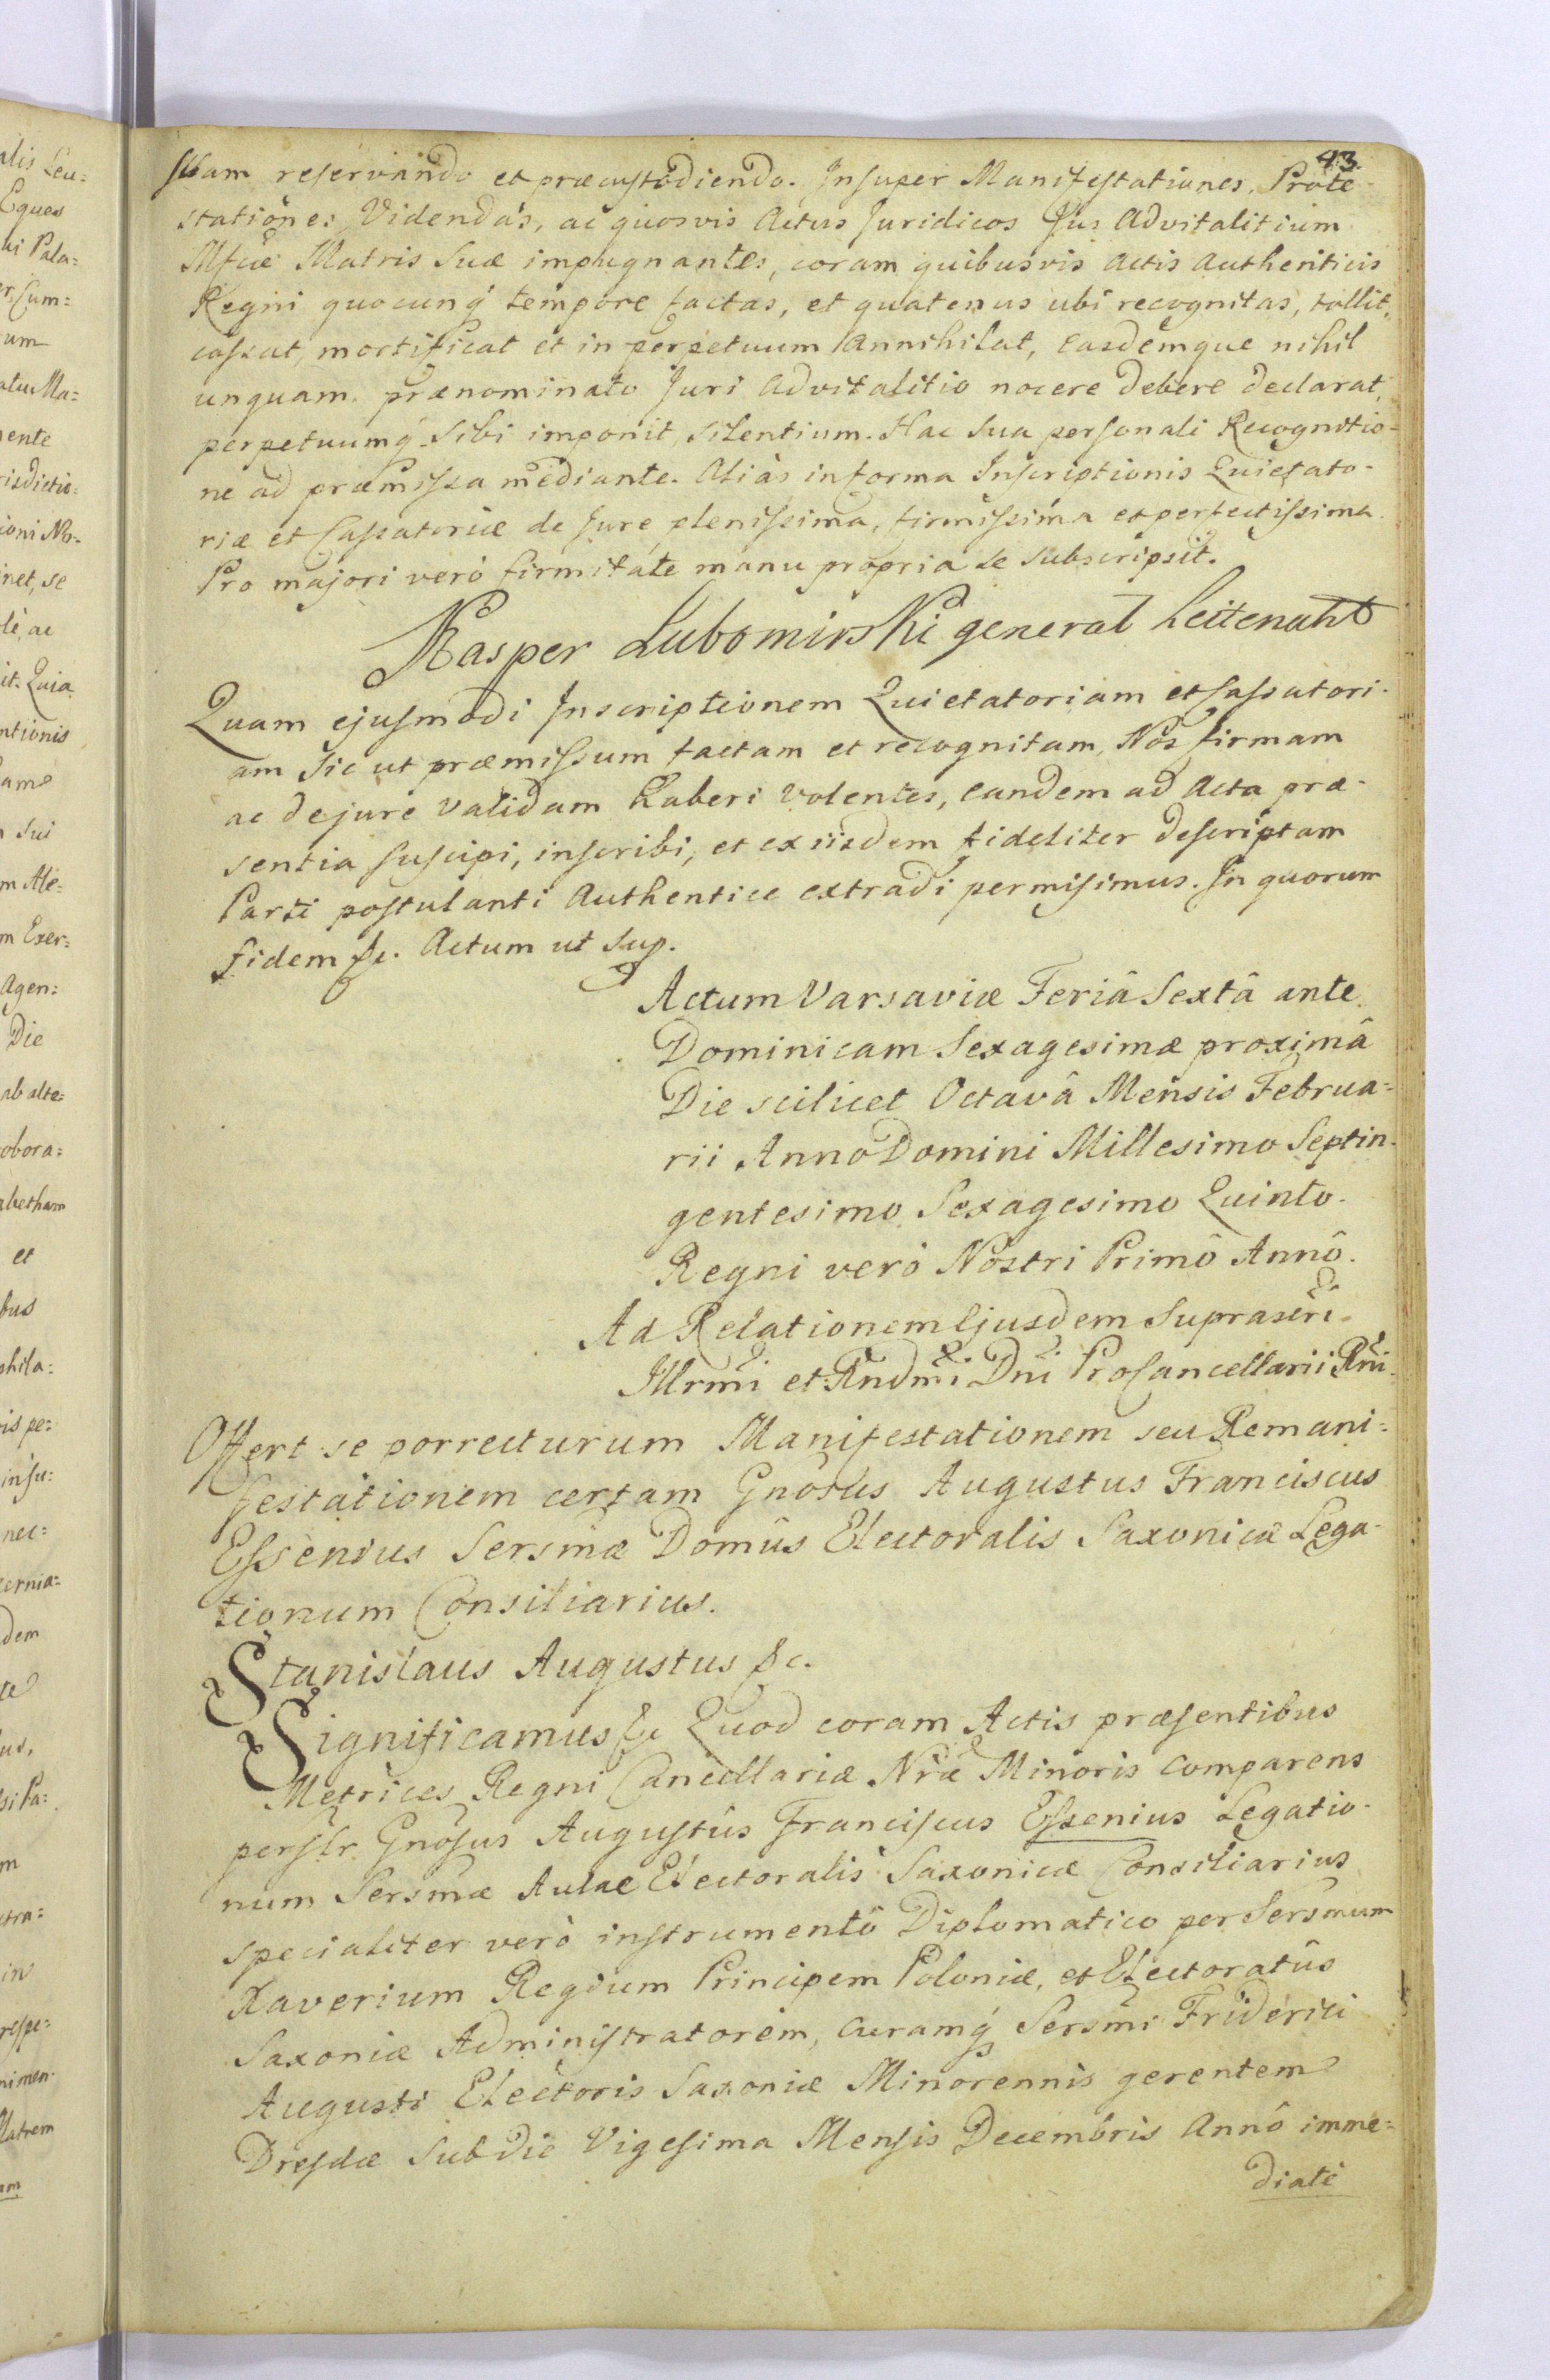 43.
suam reservando et præcustodiendo. Insuper Manifestationes, Prote-
stationes Videndas, ac quosvis Actus Juridicos Jus Advitalitium
Mfcæ Matris Suæ impugnantes, coram quibusvis Actis Authenticis
Regni quocunq́ tempore factas, et quatenus ubi recognitas, tollit,
cassat, mortificat et in perpetuum Annihilat, Easdemque nihil
unquam prænominato Juri Advitalitio nocere debere declarat,
perpetuumq́ Sibi imponit, Silentium. Hac Sua personali Recognitio-
ne ad præmissa mediante. Aliàs in forma Inscriptionis Quietato-
riæ et Cassatoriæ de Jure plenissima, firmissima et perfectissima.
Pro majori verò firmitate manu propria se Subscripsit.
Kasper Lubomirski general Leitenant
Quam ejusmodi Inscriptionem Quietatoriam et Cassatori-
am Sic ut præmissum factam et recognitam, Nos firmam
ac de jure validam haberi volentes, eandem ad Acta præ-
sentia Suscipi, inscribi, et ex iisdem fideliter descriptam
Parti postulanti Authentice extradi permisimus. In quorum
fidem &c. Actum ut Sup.
Actum Varsaviæ Feriâ Sextâ ante
Dominicam Sexagesimæ proximâ
Die scilicet Octavâ Mensis Februa=
rii Anno Domini Millesimo Septin-
gentesimo Sexagesimo Quinto.
Regni verò Nostri Primô Annô.
Ad Relationem Ejusdem Suprascri.
Illrmi et Rndmi Dni ProCancellarii Rni
Offert se porrecturum Manifestationem seu Remani=
festationem certam Gnosus Augustus Franciscus
Essenius Sersmæ Domûs Electoralis Saxonicæ Lega-
tionum Consiliarius.
Stanislaus Augustus &c.
Significamus &c Quod coram Actis præsentibus
Metrices Regni Cancellariæ Nræ Minoris Comparens
perslr Gnosus Augustus Franciscus Essenius Legatio-
num Sersmæ Aulae Electoralis Saxonicæ Consiliarius
specialiter verò instrumentô Diplomatico per Sersmum
Xaverium Regium Principem Poloniæ, et Electoratûs
Saxoniæ Administratorem, Curamq́ Sersmi Friderici
Augusti Electoris Saxoniæ Minorennis gerentem
Dresdæ Sub die Vigesima Mensis Decembris Annô imme=
diatè